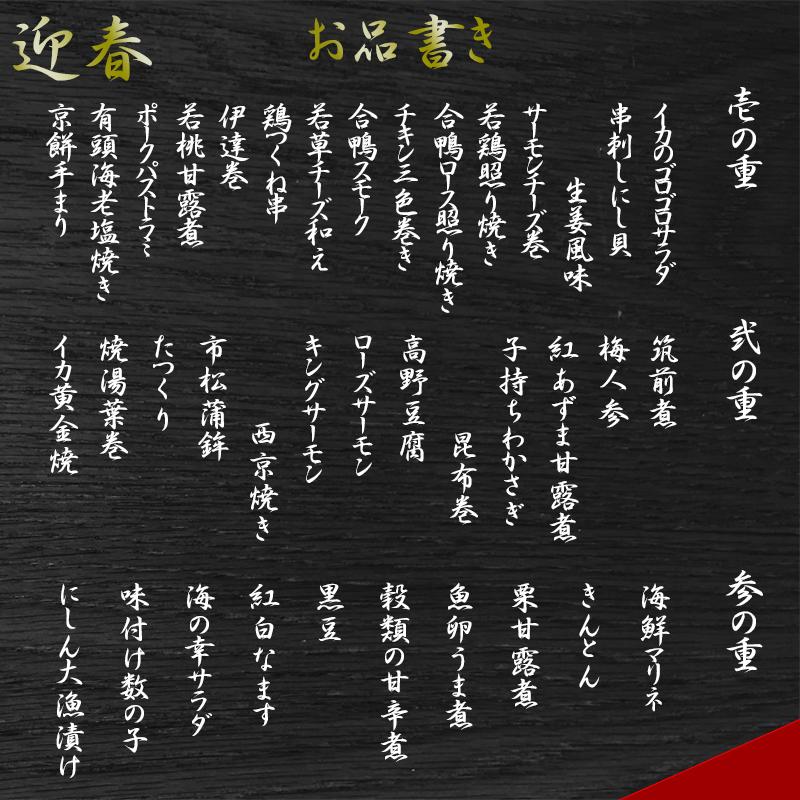 迎春
お品書き
壱の重
イカのゴロゴロサラダ
串刺しにし貝
生姜風味
サーモンチーズ巻
若鶏照り焼き
合鴨ロース照り焼き
チキン三色巻き
合鴨スモーク
若草チーズ和え
鶏つくね串
伊達巻
若桃甘露煮
ポークパストラミ
有頭海老塩焼き
京餅手まり
弐の重
筑前煮
梅人参
紅あずま甘露煮
子持ちわかさぎ
昆布巻
高野豆腐
ローズサーモン
キングサーモン
西京焼き
市松蒲鉾
たつくり
焼湯葉巻
イカ黄金焼
参の重
海鮮マリネ
きんとん
栗甘露煮
魚卵うま煮
穀類の甘辛煮
黒豆
紅白なます
海の幸サラダ
味付け数の子
にしん大漁漬け